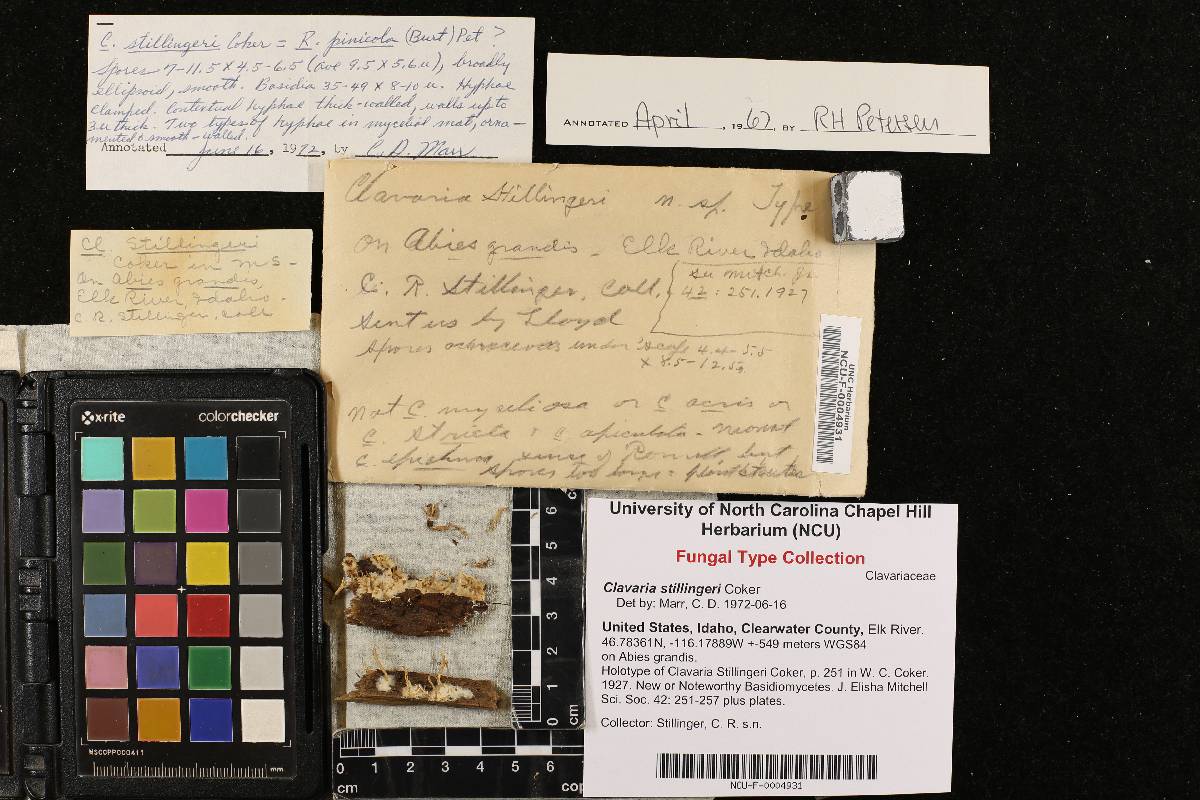 C. stillingeri Coker = R. pinicola (Burt) Pet ?
Spores 7-11.5 x 4.5-6.5 (ave 9.5 x 5.6 u), broadly
ellipsoid, smooth. Basidia 35-49 x 8-10 u. Hyphae
clamped. Contextual hyphae thick-walled, walls up to
3 u thick. Two types of hyphae in mycelial mat, orna-
mented & smooth-walled.
Annotated June 16, 1972, by C. D. Marr
ANNOTATED April, 1967, BY RH Petersen
Clavaria Stillingeri n. sp. Type
On Abies grandis - Elk River Idaho
C. R. Stillinger, coll.
See Mitch. Jr.
42: 251. 1927
Sent us by Lloyd
Spores ochraceous under scope 4.4-5.5
x 8.5-12.5
Not C. myceliosa or C acris or
C. stricta & C apiculata - nearest
C. sense of Romell but
spores too long =
Cl Stillingeri
Coker in ms -
On Abies grandis,
Elk River, Idaho.
C. R. Stillinger, coll
UNC Herbarium
NCU-F-0004931
x-rite colorchecker
MSCCPPC00411
mm
6
5
4
3
2
1
0
cm
0 1 2 3 4 5 6
cm cop
University of North Carolina Chapel Hill
Herbarium (NCU)
Fungal Type Collection
Clavariaceae
Clavaria stillingeri Coker
Det by: Marr, C. D. 1972-06-16
United States, Idaho, Clearwater County, Elk River.
46.78361N, -116.17889W +-549 meters WGS84
on Abies grandis.
Holotype of Clavaria Stillingeri Coker, p. 251 in W. C. Coker.
1927. New or Noteworthy Basidiomycetes. J. Elisha Mitchell
Sci. Soc. 42: 251-257 plus plates.
Collector: Stillinger, C. R. s.n.
NCU-F-0004931